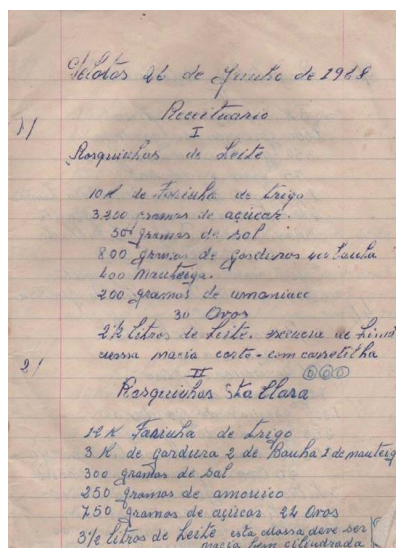 Pelotas 26 de Junho de 1968
Receituario
1/
I
Rosquinhas de Leite
10 K de Farinha de trigo
3,200 gramas de açucar.
50 gramas de sal
800 gramas de gorduras
400 Manteiga.
200 gramas de amoniaco
30 Ovos
2 1/2 litros de Leite. essencia de
massa macia corte-com carretilha
2/
II
Rosquinhas Sta Clara
12 K Farinha de trigo
3 K de gordura 2 de Banha 1 de manteiga
300 gramas de sal
250 gramas de amonico
750 gramas de açucar 22 Ovos
3 1/2 litros de Leite esta massa deve ser
macia bem cilindrada